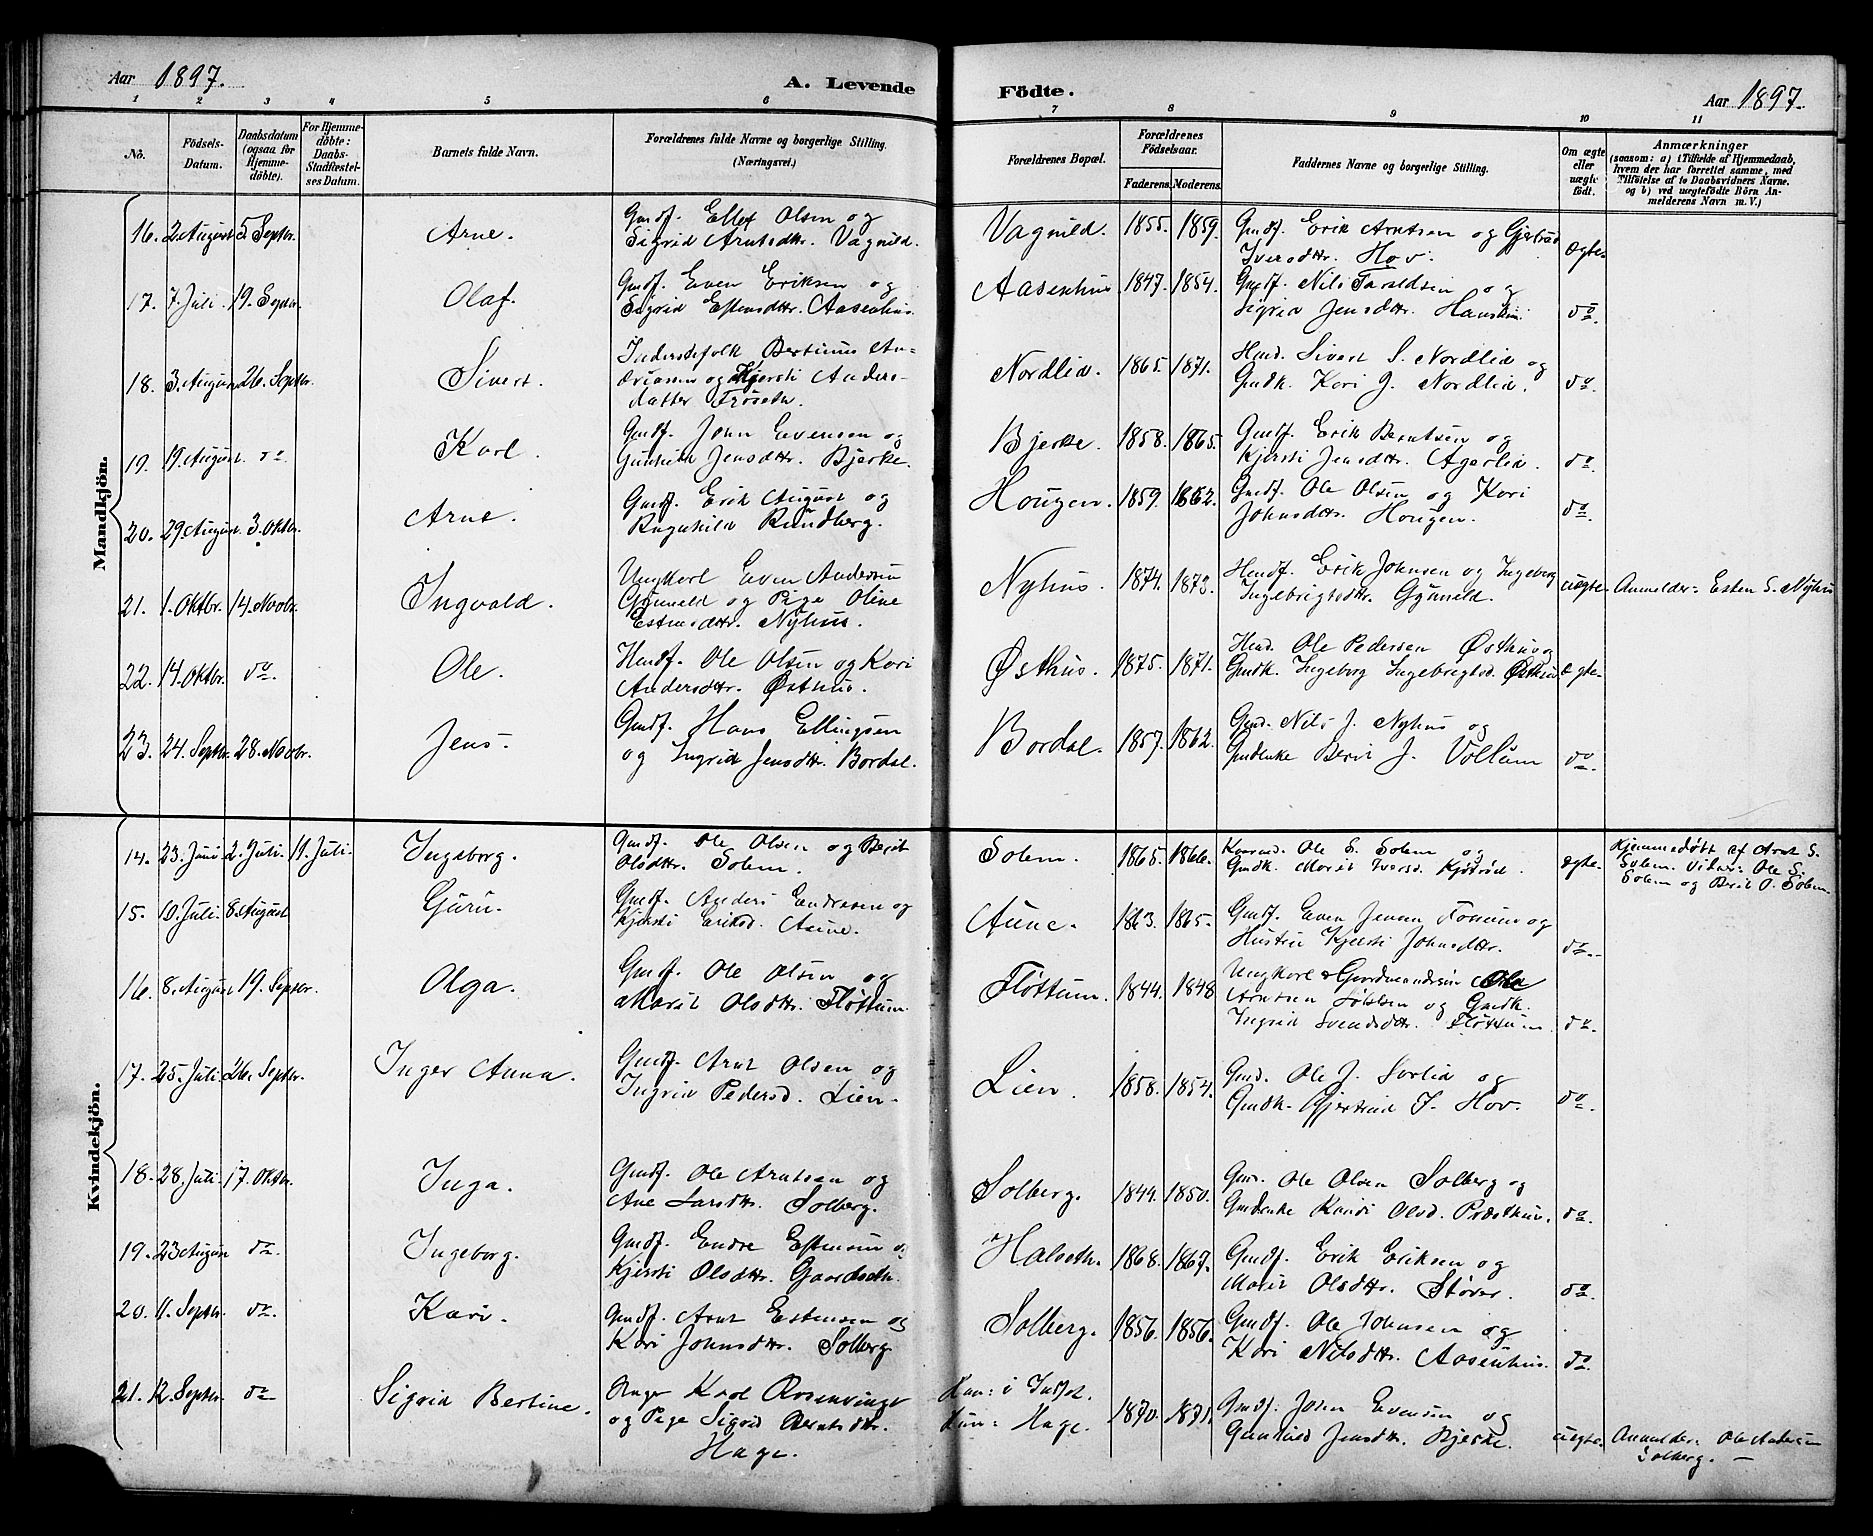 Aar 1897. A. Levende Födte. Aar 1897.
1 2 3 4 5 6 7 8 9 10 11
No. Födsels-Datum. Daabsdatum (ogsaa for Hjemmedöbte). For Hjemmedöbte: Daabs-Stadfæstelses Datum. Barnets fulde Navn. Forældrenes fulde Navne og borgerlige Stilling. (Næringsvei.) Forældrenes Bopæl. Forældrenes Födselsaar. Faderens. Moderens. Faddernes Navne og borgerlige Stilling. Om ægte eller uægte födt. Anmærkninger (saasom: a) i Tilfælde af Hjemmedaab, hvem der har forrettet samme, med Tilföielse af to Daabsvidners Navne, og b) ved uægtefödte Börn Anmelderens Navn m. V.)
Mandkjön.
16. 2. August 5. Septbr. Arne. Gmdf. Ellef Olsen og Sigrid Arntsdtr. Vagnild. Vagnild. 1855. 1859. Gmdf. Erik Arntsen og Gjertrud Iversdtr. Hov. ægte
17. 7. Juli 19. Septbr. Olaf. Gmdf. Even Eriksen og Sigrid Estensdtr. Aasenhus. Aasenhus 1847. 1854. Gmdf. Nils Taraldsen og Sigrid Jensdtr. do.
18. 3. August 26. Septbr. Sivert. Inderstfolk Bertinus Andreasen og Kjersti Andersdatter Frøseth. Nordlid. 1865. 1871. Sivert S. Nordlid og Gmdk. Kari J. Nordlid. do.
19. 19. August. do Karl. Gmdf. John Evensen og Gunhild Jensdtr. Bjerke. Bjerke 1858. 1865. Gmdf. Erik Berntsen og Kjersti Jensdtr. Agerlid. do.
20. 29. August. 3. Oktbr. Arne. Gmdf. Erik August og Ragnhild Rundberg. Hougen. 1859. 1862. Gmdf. Ole Olsen og Kari Johnsdtr. Hougen. do.
21. 1. Oktbr. 14. Novbr. Ingvald. Ungkarl Even Andersen Gynneld og Pige Oline Estensdtr. Nyhus. Nyhus. 1874. 1873. Erik Johnsen og Ingeborg Ingebrigtsdtr. Gynneld. uægte Anmelder: Esten S. Nyhus
22. 14. Oktbr. do. Ole. Ole Olsen og Kari Andersdtr. Østhus. Østhus. 1875. 1871. Ole Pedersen Østhus og Gmdk. Ingeborg Ingebrigtsd. Østhus ægte
23. 24. Septbr. 28. Novbr. Jens. Gmdf. Hans Ellingsen og Ingrid Jensdtr. Bordal. Bordal. 1857. 1862. Gmd. Nils J. Nyhus og Gmdenke Berit J. Vollum do.
Kvindekjön.
14. 23. Juni 2. Juli. 11. Juli. Ingeborg. Gmdf. Ole Olsen og Berit Olsdtr. Solem. Solem. 1865. 1866. Ole S. Solem og Gmdk. Marit Iversd. ægte Hjemmedøbt af Arnt S. Solem. Vidner: Ole S. Solem og Berit O. Solem.
15. 10. Juli. 8. August Guru. Gmdf. Anders Endresen og Kjersti Eriksd. Aune. Aune. 1863. 1865. Gmdf. Even Jensen Fossum og Hustru Kjersti Johnsdtr. do.
16. 8. August 19. Septbr. Olga. Gmdf. Ole Olsen og Marit Olsdtr. Fløttum. Fløttum. 1844. 1848 Ungkarl Ole Arntsen og Gmdk. Ingrid Svendsdtr. Fløttum. do.
17. 25. Juli. 26. Septbr. Inger Anna. Gmdf. Arnt Olsen og Ingrid Pedersd. Lien. Lien. 1858. 1854. Gmd. Ole J. Sorlid og Gmdk. Gjertrud I. Hov. do.
18. 28. Juli. 17. Oktbr. Inga. Gmdf. Ole Arntsen og Ane Larsdtr. Solberg. Solberg. 1844. 1850. Gmd. Ole Olsen Solberg og Gmdenke Randi Olsd. Præsthus. do.
19. 23 August do. Ingeborg. Gmdf. Endre Estensen og Kjersti Olsdtr. Gaardseth. Halseth. 1868. 1867. Gmdf. Erik Eriksen og Marit Olsdtr. Størvr. do.
20. 11. Septbr. do. Kari. Gmdf. Arnt Estensen og Kari Johnsdtr. Solberg Solberg. 1856. 1856. Gmdf. Ole Johnsen og Kari Nilsdtr. Aasenhus. do.
21. 12. Septbr. do Sigrid Bertine. Karl Rosenvinge og Pige Sigrid Berntsdtr. Hage. Han: i Hun: Hage. 1870. 1871. Gmdf. John Evensen og Gunhild Jensdtr. Bjerke. uægte. Anmelder: Ole Andersen Solberg.